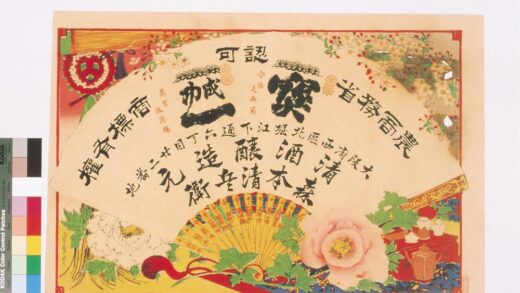 農商務省
認可
商標有權
寳
誠一
大阪府西區北堀江下通六丁目廿二番地
清酒醸造元
森本清兵衛
KODAK Color Control Patches